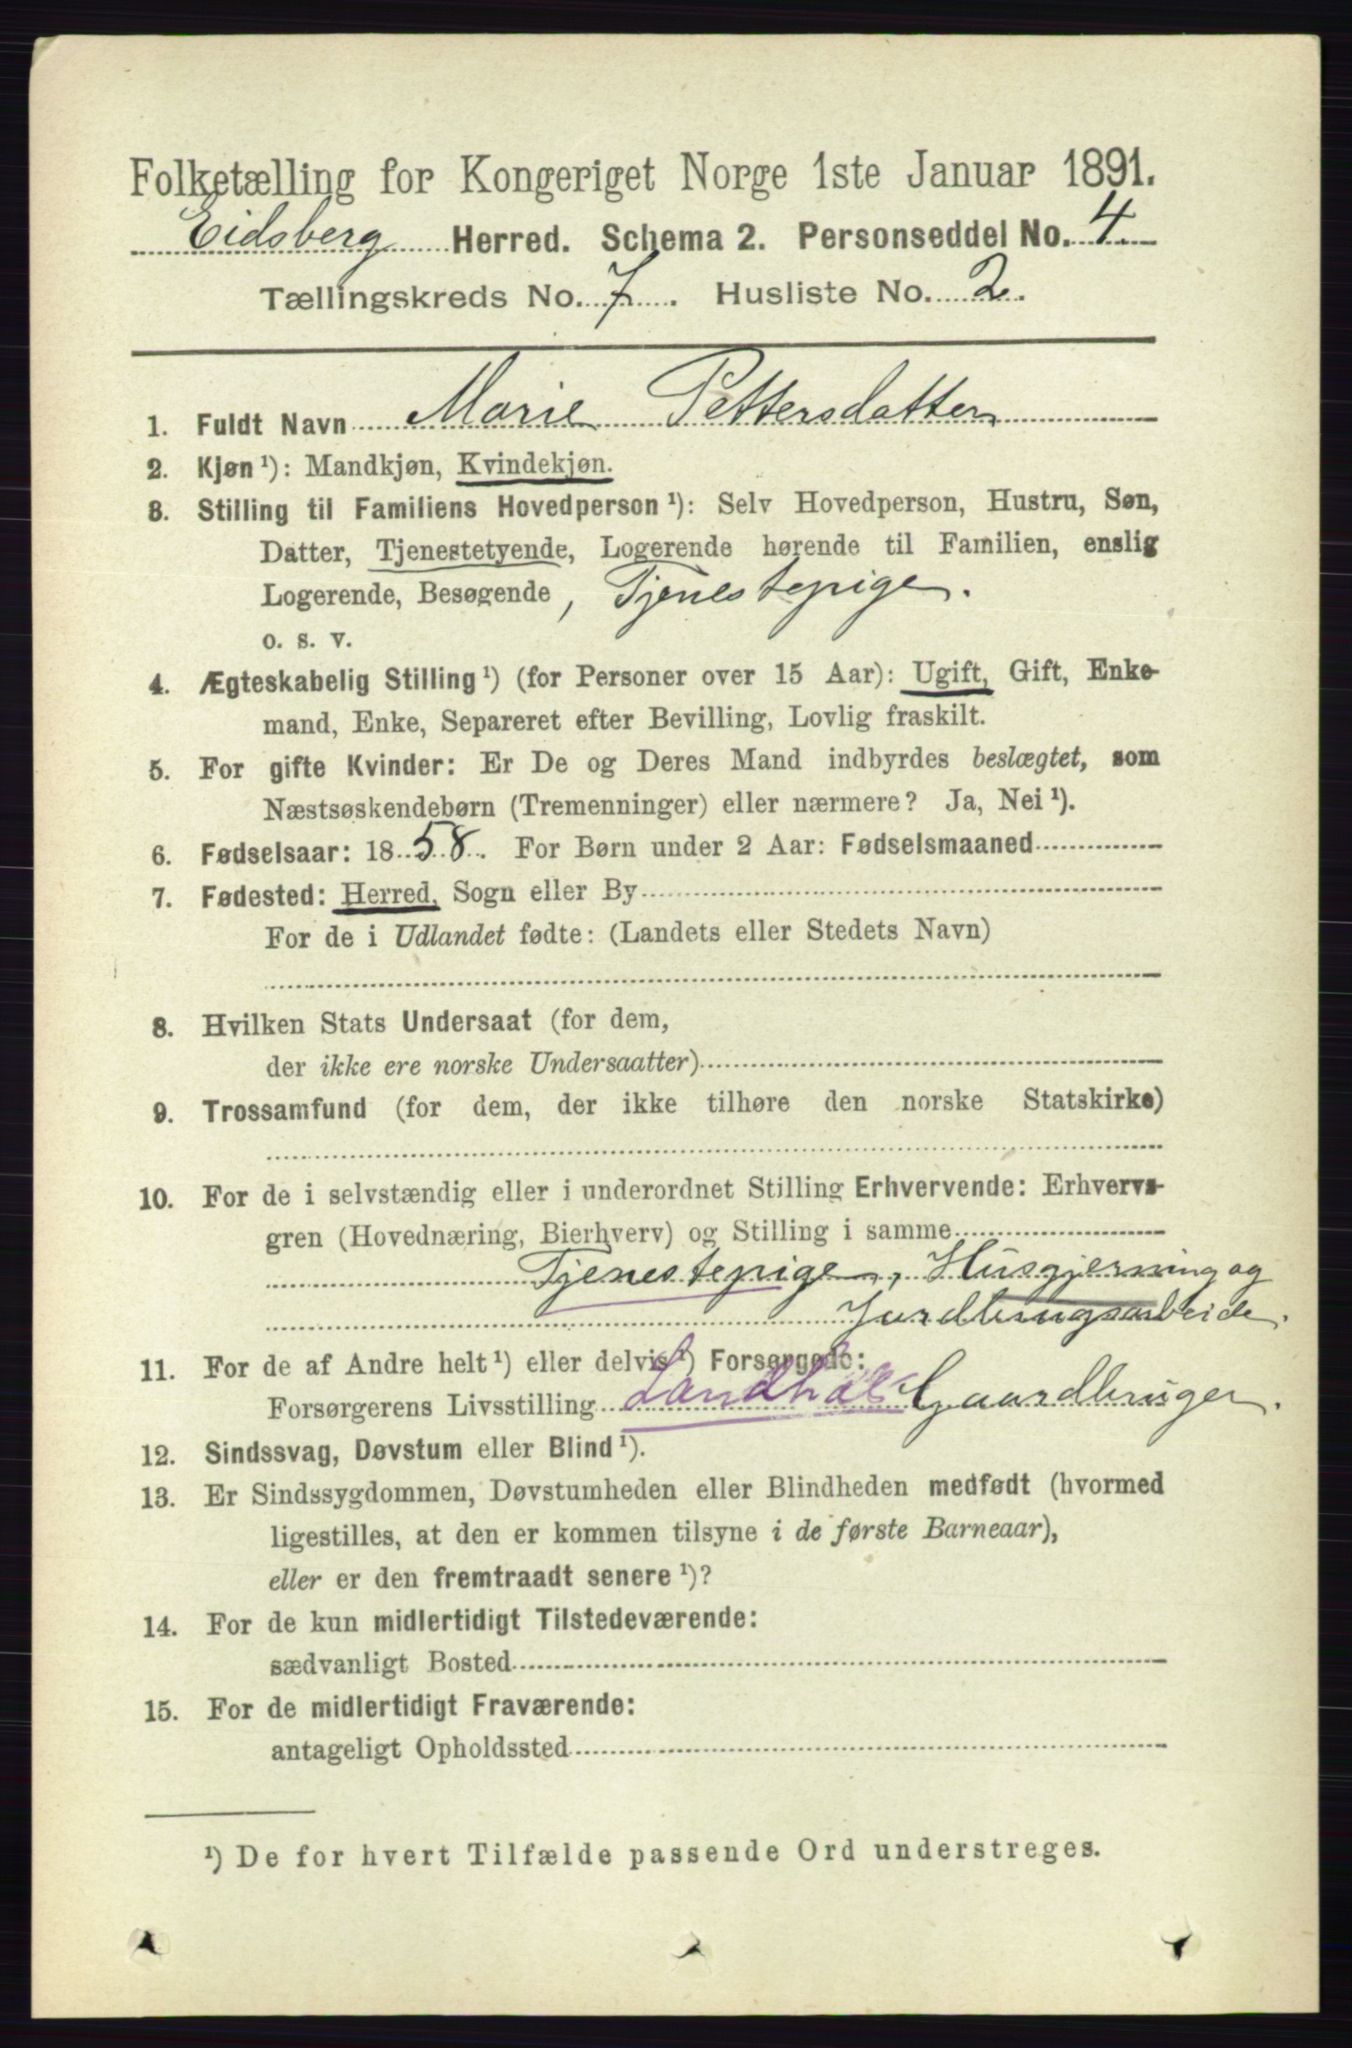 Folketælling for Kongeriget Norge 1ste Januar 1891.
Eidsberg Herred. Schema 2. Personseddel No. 4.
Tællingskreds No. 7. Husliste No. 2.
1. Fuldt Navn Marie Pettersdatter
2. Kjøn ¹): Mandkjøn, Kvindekjøn.
3. Stilling til Familiens Hovedperson ¹): Selv Hovedperson, Hustru, Søn,
Datter, Tjenestetyende, Logerende hørende til Familien, enslig
Logerende, Besøgende, Tjenestepige.
o. s. v.
4. Ægteskabelig Stilling ¹) (for Personer over 15 Aar): Ugift, Gift, Enke-
mand, Enke, Separeret efter Bevilling, Lovlig fraskilt.
5. For gifte Kvinder: Er De og Deres Mand indbyrdes beslægtet, som
Næstsøskendebørn (Tremenninger) eller nærmere? Ja, Nei ¹).
6. Fødselsaar: 1858. For Børn under 2 Aar: Fødselsmaaned
7. Fødested: Herred, Sogn eller By
For de i Udlandet fødte: (Landets eller Stedets Navn)
8. Hvilken Stats Undersaat (for dem,
der ikke ere norske Undersaatter)
9. Trossamfund (for dem, der ikke tilhøre den norske Statskirke)
10. For de i selvstændig eller i underordnet Stilling Erhvervende: Erhvervs-
gren (Hovednæring, Bierhverv) og Stilling i samme
Tjenestepige, Husgjerning og
Jordbrugsarbeide.
11. For de af Andre helt ¹) eller delvis ¹) Forsørgede:
Forsørgerens Livsstilling Gaardbruger.
12. Sindssvag, Døvstum eller Blind ¹).
13. Er Sindssygdommen, Døvstumheden eller Blindheden medfødt (hvormed
ligestilles, at den er kommen tilsyne i de første Barneaar),
eller er den fremtraadt senere ¹)?
14. For de kun midlertidigt Tilstedeværende:
sædvanligt Bosted
15. For de midlertidigt Fraværende:
antageligt Opholdssted
¹) De for hvert Tilfælde passende Ord understreges.